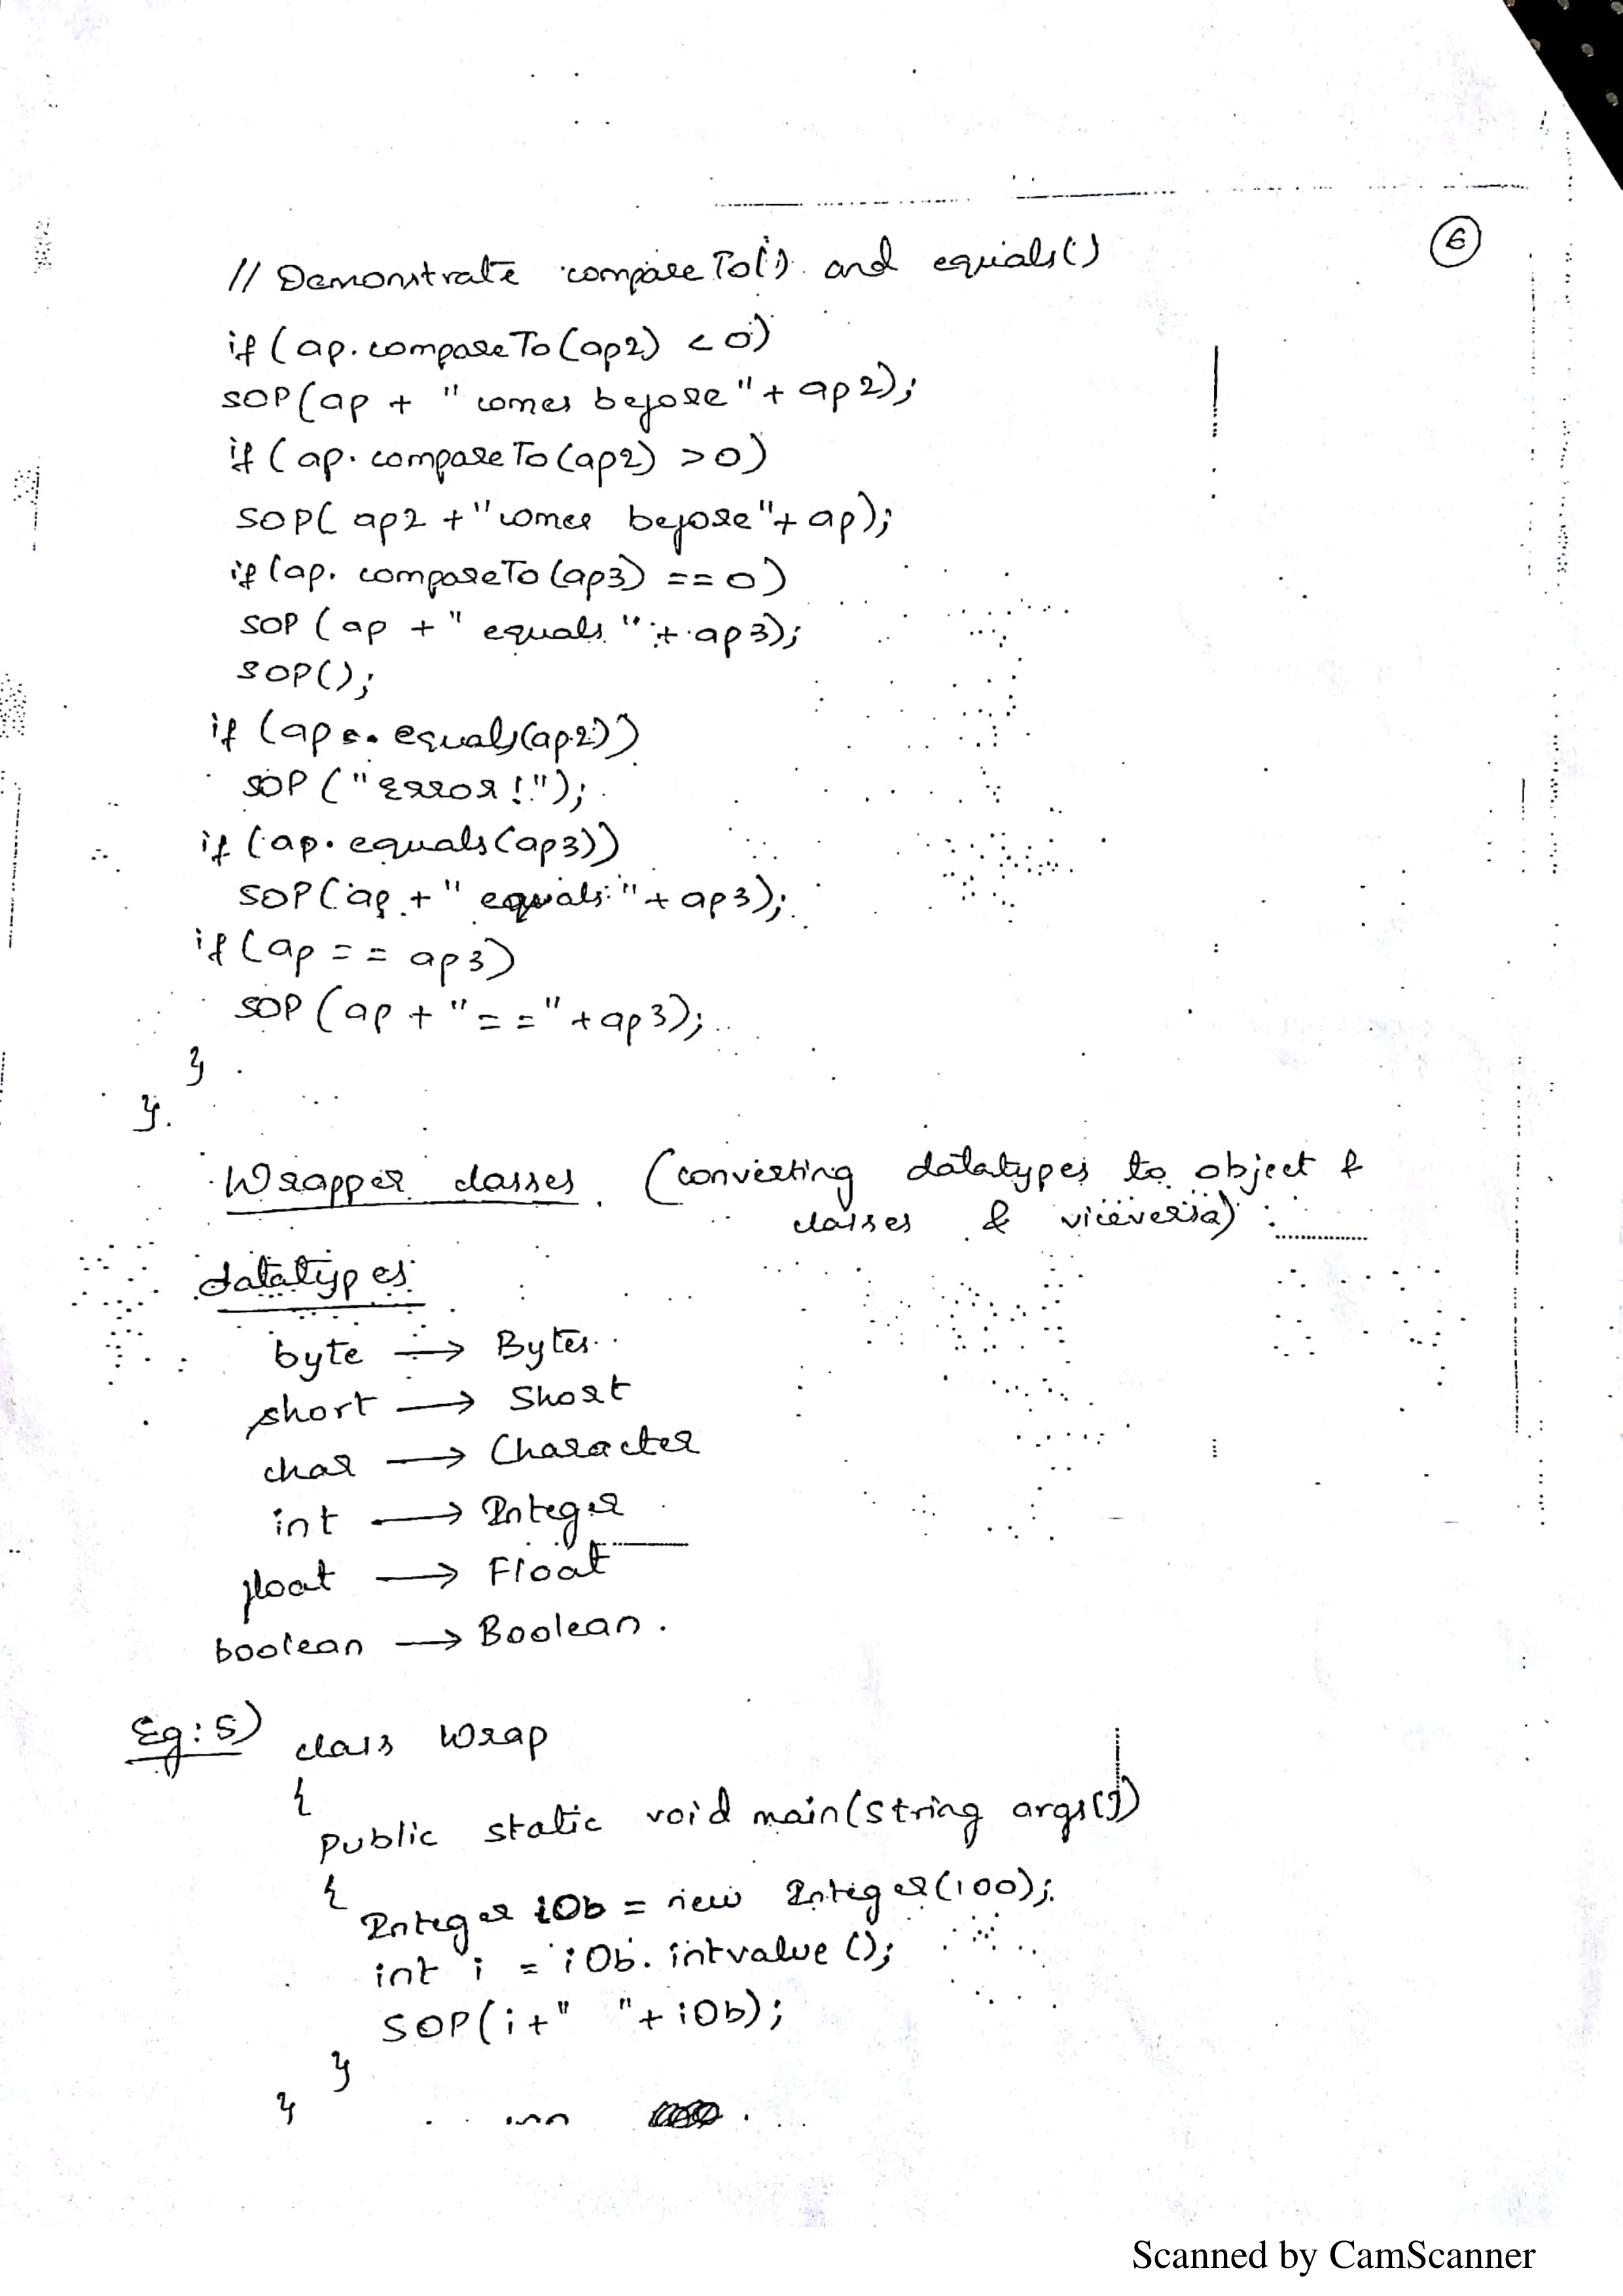 6
// Demonstrate compareTo() and equals()
if (ap.compareTo(ap2) < 0)
SOP(ap + " comes before " + ap2);
if (ap.compareTo(ap2) > 0)
SOP( ap2 + "comes before"+ ap);
if (ap. compareTo(ap3) == 0)
SOP (ap + " equals " + ap3);
SOP();
if (ap . equals(ap2))
SOP ("Error!");
if (ap.equals(ap3))
SOP(ap + " equals "+ ap3);
if (ap == ap3)
SOP (ap + "==" + ap3);
}
}.
Wrapper classes. (converting datatypes to object &
classes & viceversa)
datatypes
byte → Bytes
short → Short
char → Character
int → Integer
float → Float
boolean → Boolean.
Eg:5) class Wrap
{
public static void main(string args[])
{
Integer iOb = new Integer(100);
int i = iOb. intvalue();
SOP(i+" "+iOb);
}
}
Scanned by CamScanner